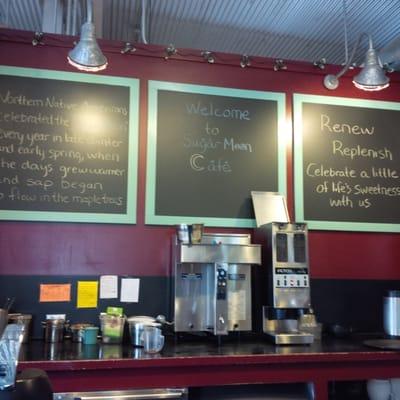 Northern Native Americans
celebrated
every year in late winter
and early spring, when
the days grew warmer
and sap began
to flow in the maple trees
Welcome
to
Sugar Moon
Café
Renew
Replenish
Celebrate a little
of life's sweetness
with us